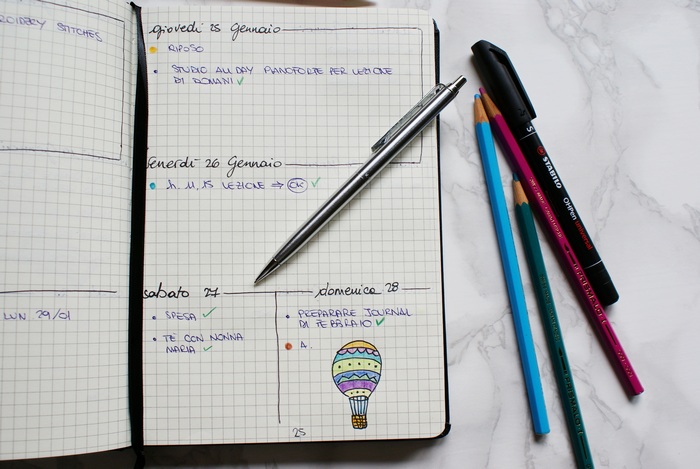 STITCHES
LUN 29/01
giovedì 25 Gennaio
RIPOSO
STUDIO ALL DAY PIANOFORTE PER LEZIONE
DI DOMANI ✓
Venerdì 26 Gennaio
h. 11,15 LEZIONE ⇒ OK ✓
sabato 27
SPESA ✓
TÈ CON NONNA
MARIA ✓
domenica 28
PREPARARE JOURNAL
DI FEBBRAIO ✓
A.
25
STABILO OHPen universal